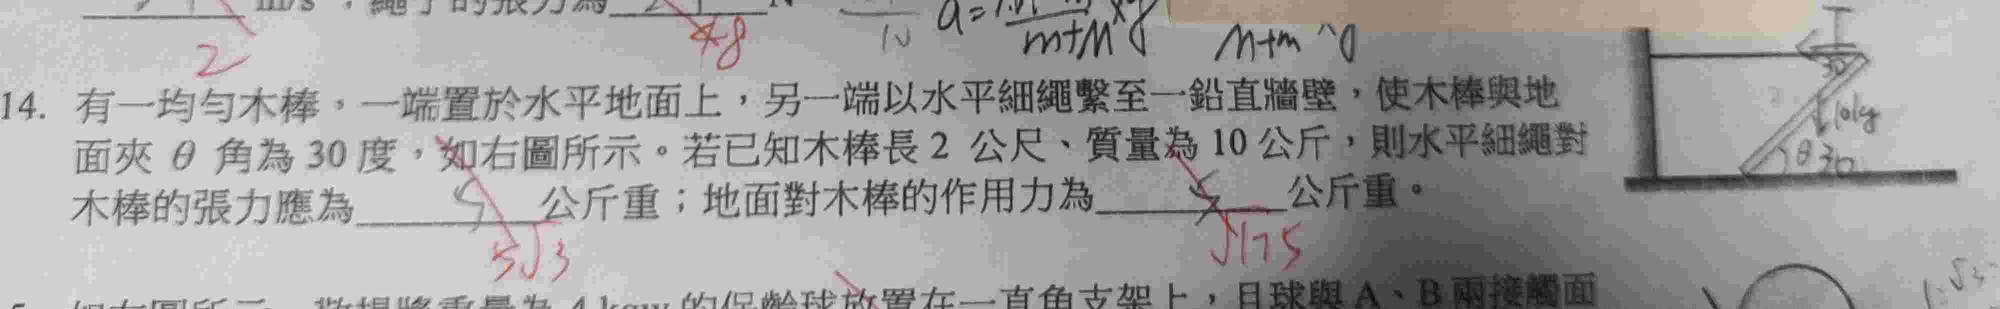 2
48
10
a=
m+M
14. 有一均勻木棒，一端置於水平地面上，另一端以水平細繩繫至一鉛直牆壁，使木棒與地
面夾 θ 角為 30 度，如右圖所示。若已知木棒長 2 公尺、質量為 10 公斤，則水平細繩對
木棒的張力應為 5 公斤重；地面對木棒的作用力為 5 公斤重。
5√3
√175
T
30
10kg
θ 30
的保齡球放置在一直角支架上，且球與 A、B 兩接觸面